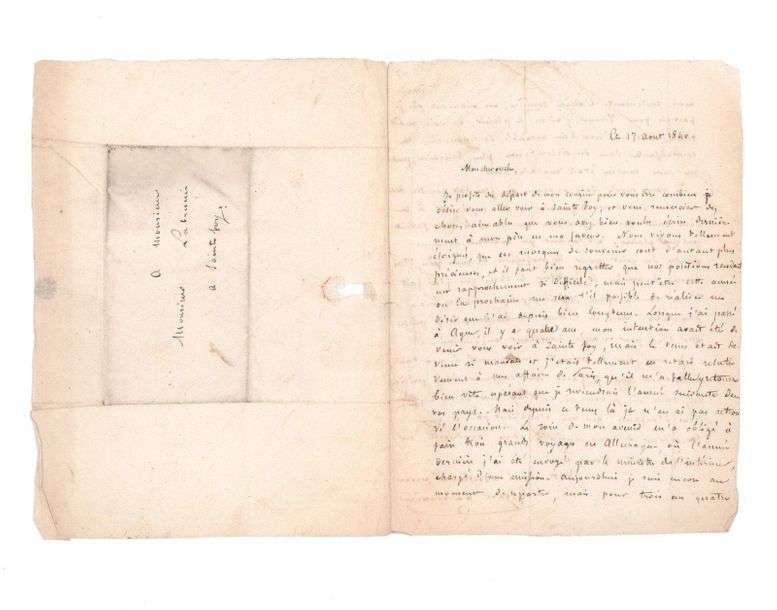 Monsieur
A Monsieur
à Sainte foy
Ce 17 aout 1840.
Je profite du départ de mon cousin pour vous dire combien je
désire vous aller voir à Sainte foy, et vous remercier des
choses aimables que vous avez bien voulu écrire dernière
ment à mon père en ma faveur. Nous vivons tellement
éloignés, que ces marques de souvenir sont d'autant plus
précieuses, et il faut bien regretter que nos positions rendent
un rapprochement si difficile, mais peut être cette année
ou la prochaine, me sera t'il possible de réaliser un
désir que j'ai depuis bien longtems. Lorsque j'ai passé
à Agen, il y a quatre ans, mon intention avait été de
venir vous voir à Sainte foy, mais le tems était de
venu si mauvais et j'étais tellement en retard relative
ment à mes affaires de Paris, qu'il m'a fallu y retourner
bien vite, espérant que je reviendrais l'année suivante dans
vos pays. Mais depuis ce tems là je n'en ai pas retrou
vé l'occasion. Le soin de mon avenir m'a obligé à
faire trois grands voyages en Allemagne où l'année
dernière j'ai été envoyé par le ministre de l'intérieur,
chargé d'une mission. Aujourd'hui je suis encore au
moment de repartir, mais pour trois ou quatre